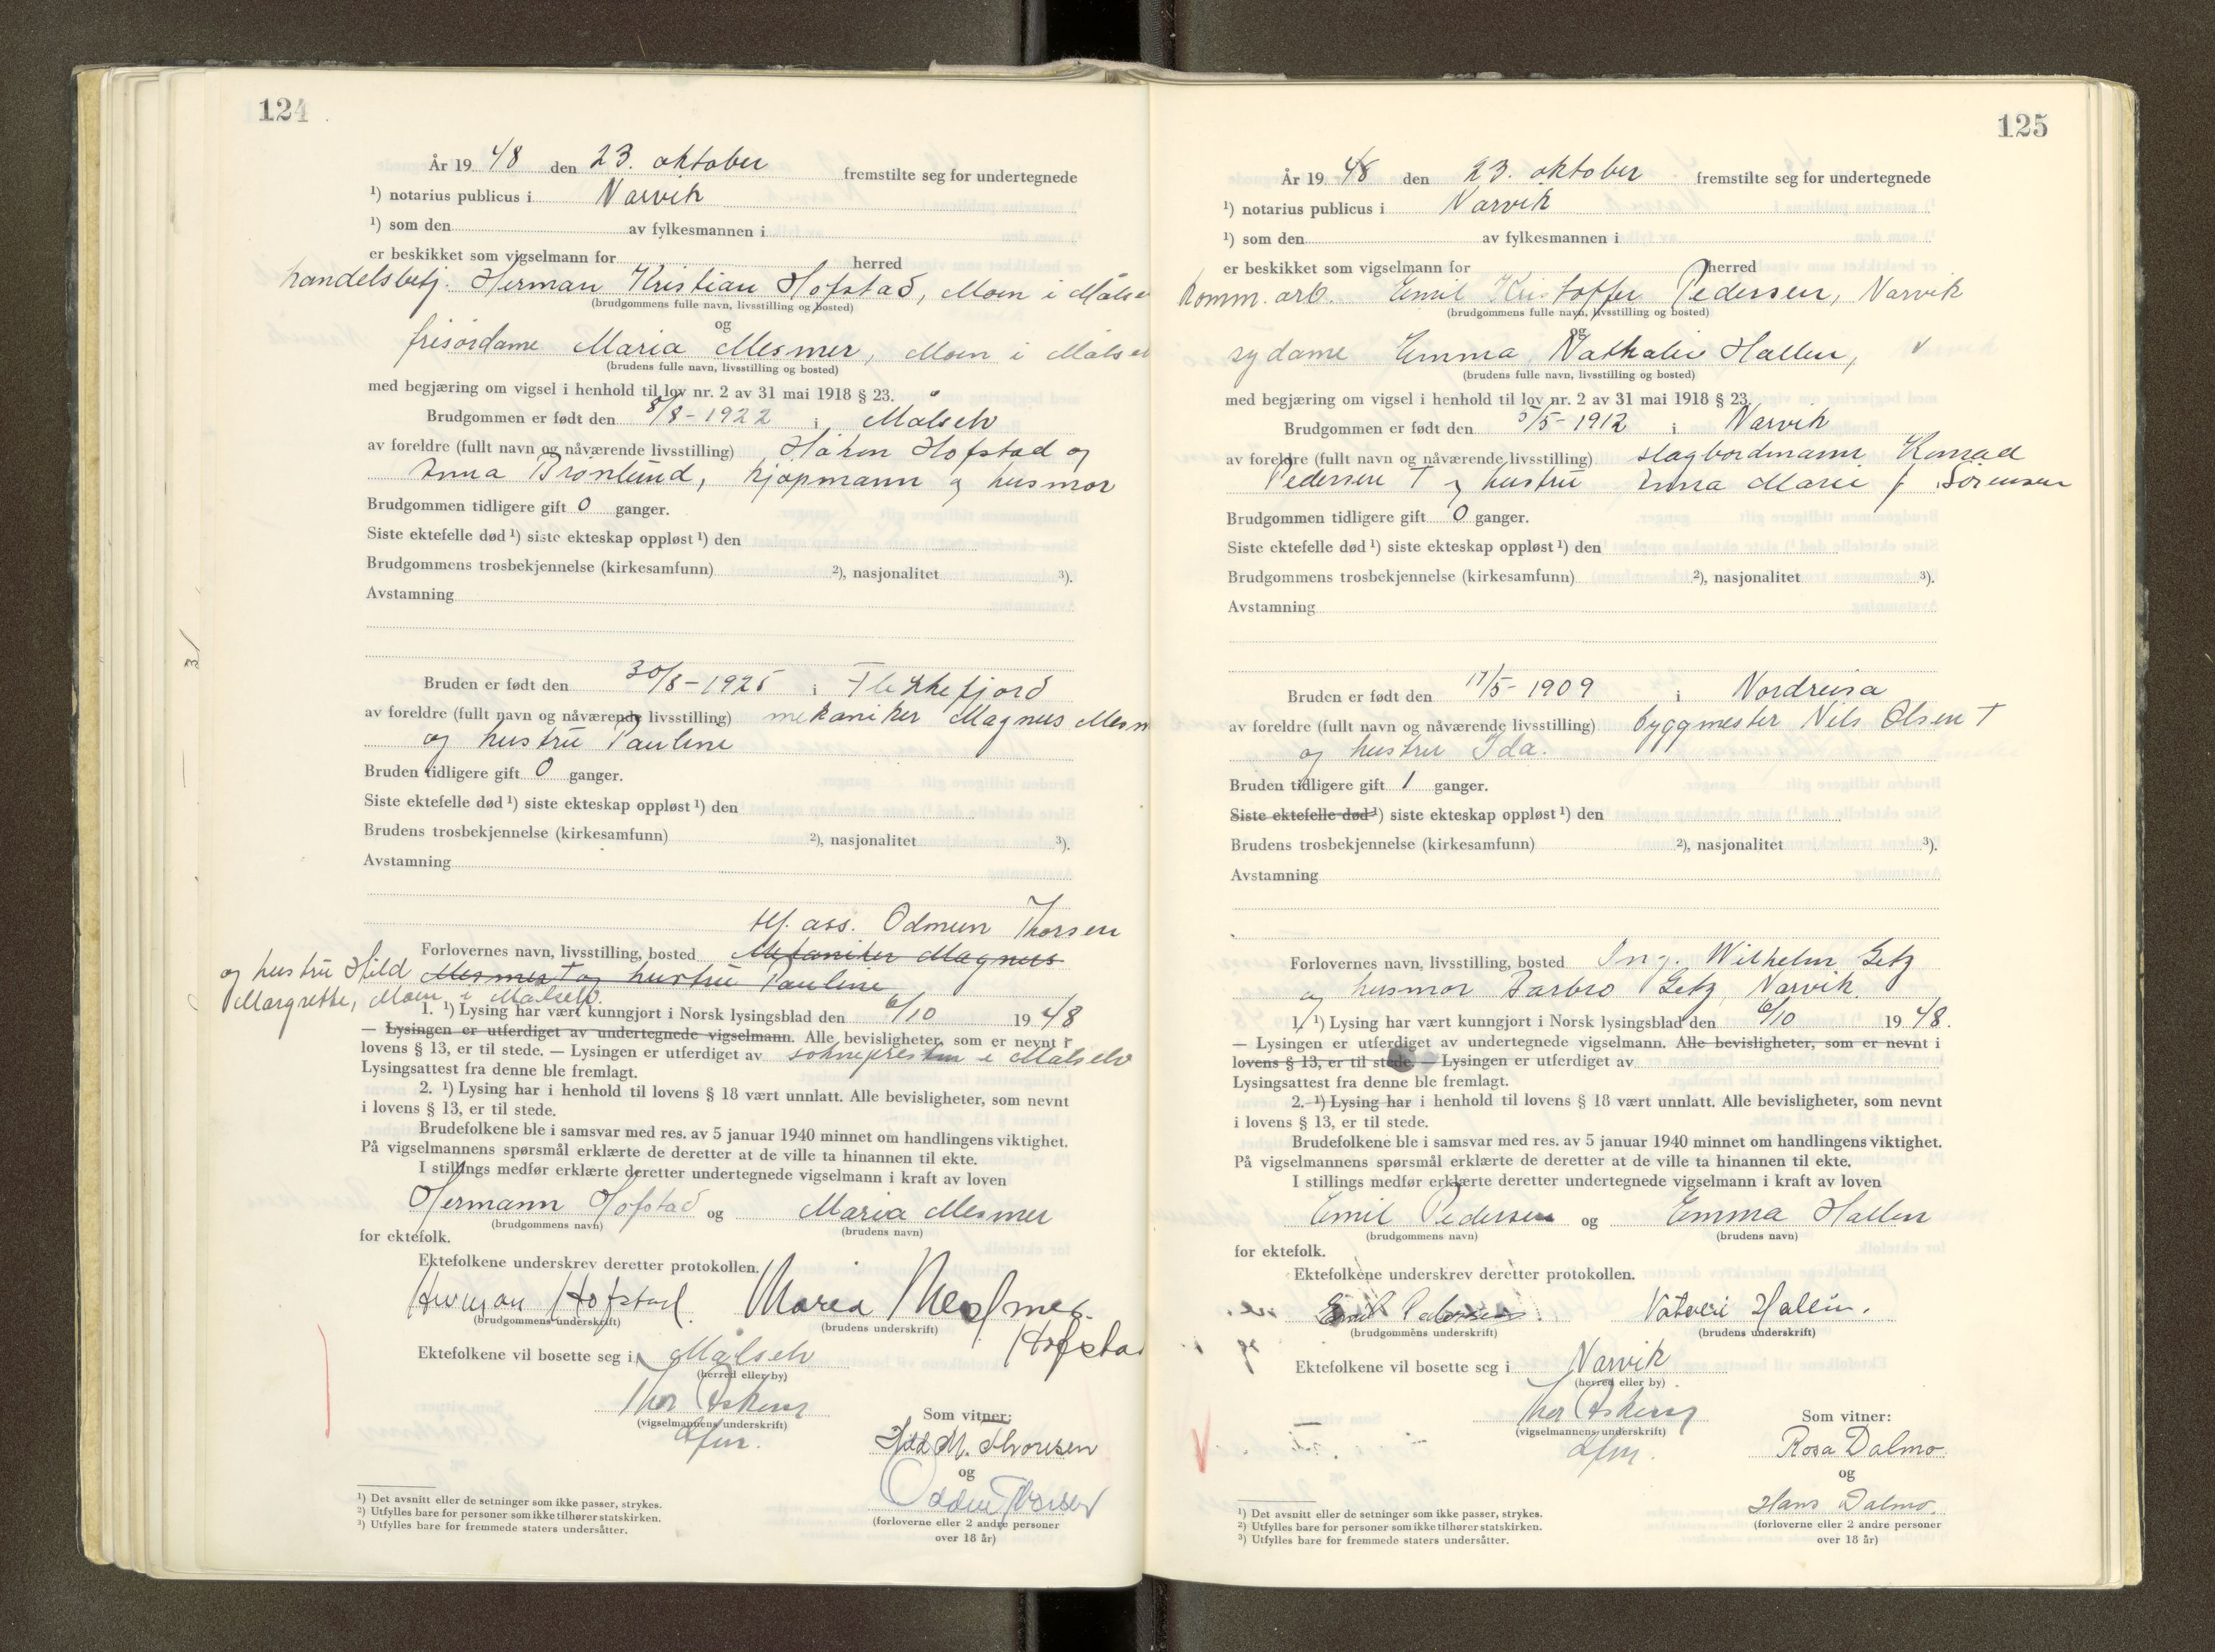 124
År 19 48 den 23. oktober fremstilte seg for undertegnede
¹) notarius publicus i Narvik
¹) som den av fylkesmannen i
er beskikket som vigselmann for herred
handelsbetj. Herman Kristian Hofstad, Moen i Målse
(brudgommens fulle navn, livsstilling og bosted)
og
frisørdame Maria Mesmer, Moen i Målsel
(brudens fulle navn, livsstilling og bosted)
med begjæring om vigsel i henhold til lov nr. 2 av 31 mai 1918 § 23.
Brudgommen er født den 8/8-1922 i Målselv
av foreldre (fullt navn og nåværende livsstilling) Håkon Hofstad og
Anna Brønlund, kjøpmann og husmor
Brudgommen tidligere gift 0 ganger.
Siste ektefelle død ¹) siste ekteskap oppløst ¹) den
Brudgommens trosbekjennelse (kirkesamfunn) ²), nasjonalitet ³).
Avstamning
Bruden er født den 30/8-1925 i Flekkefjord
av foreldre (fullt navn og nåværende livsstilling) mekaniker Magnus Mesm
og hustru Pauline
Bruden tidligere gift 0 ganger.
Siste ektefelle død ¹) siste ekteskap oppløst ¹) den
Brudens trosbekjennelse (kirkesamfunn) ²), nasjonalitet ³).
Avstamning
ass. Odmun Thorsen
Forlovernes navn, livsstilling, bosted Mekaniker Magnus
og hustru Hild Mesmer † og hustru Pauline
Margrethe, Moen i Målselv.
1. ¹) Lysing har vært kunngjort i Norsk lysingsblad den 6/10 1948
— Lysingen er utferdiget av undertegnede vigselmann. Alle bevisligheter, som er nevnt i
lovens § 13, er til stede. — Lysingen er utferdiget av soknepresten i Målselv
Lysingsattest fra denne ble fremlagt.
2. ¹) Lysing har i henhold til lovens § 18 vært unnlatt. Alle bevisligheter, som nevnt
i lovens § 13, er til stede.
Brudefolkene ble i samsvar med res. av 5 januar 1940 minnet om handlingens viktighet.
På vigselmannens spørsmål erklærte de deretter at de ville ta hinannen til ekte.
I stillings medfør erklærte deretter undertegnede vigselmann i kraft av loven
Hermann Hofstad og Maria Mesmer
(brudgommens navn) (brudens navn)
for ektefolk.
Ektefolkene underskrev deretter protokollen.
Herman Hofstad. Maria Mesmer.
(brudgommens underskrift) (brudens underskrift)
Hofstad
Ektefolkene vil bosette seg i Målselv
(herred eller by)
Thor
(vigselmannens underskrift)
Som vitner:
Hild M. Thoresen
og
(forloverne eller 2 andre personer
over 18 år)
¹) Det avsnitt eller de setninger som ikke passer, strykes.
²) Utfylles bare for personer som ikke tilhører statskirken.
³) Utfylles bare for fremmede staters undersåtter.
125
År 19 48 den 23. oktober fremstilte seg for undertegnede
¹) notarius publicus i Narvik
¹) som den av fylkesmannen i
er beskikket som vigselmann for herred
Komm. arb. Emil Kristoffer Pedersen, Narvik
(brudgommens fulle navn, livsstilling og bosted)
og
sydame Emma Nathalie Hallen,
(brudens fulle navn, livsstilling og bosted)
med begjæring om vigsel i henhold til lov nr. 2 av 31 mai 1918 § 23.
Brudgommen er født den 5/5-1912 i Narvik
av foreldre (fullt navn og nåværende livsstilling) slagbordmann Konrad
Pedersen † og hustru Anna Marie f. Sørensen
Brudgommen tidligere gift 0 ganger.
Siste ektefelle død ¹) siste ekteskap oppløst ¹) den
Brudgommens trosbekjennelse (kirkesamfunn) ²), nasjonalitet ³).
Avstamning
Bruden er født den 17/5-1909 i Nordreisa
av foreldre (fullt navn og nåværende livsstilling) byggmester Nils Olsen †
og hustru Ida.
Bruden tidligere gift 1 ganger.
Siste ektefelle død ¹) siste ekteskap oppløst ¹) den
Brudens trosbekjennelse (kirkesamfunn) ²), nasjonalitet ³).
Avstamning
Forlovernes navn, livsstilling, bosted Ing. Wilhelm Getz
og husmor Barbro Getz, Narvik.
1. ¹) Lysing har vært kunngjort i Norsk lysingsblad den 6/10 1948.
— Lysingen er utferdiget av undertegnede vigselmann. Alle bevisligheter, som er nevnt i
lovens § 13, er til stede. — Lysingen er utferdiget av
Lysingsattest fra denne ble fremlagt.
2. ¹) Lysing har i henhold til lovens § 18 vært unnlatt. Alle bevisligheter, som nevnt
i lovens § 13, er til stede.
Brudefolkene ble i samsvar med res. av 5 januar 1940 minnet om handlingens viktighet.
På vigselmannens spørsmål erklærte de deretter at de ville ta hinannen til ekte.
I stillings medfør erklærte deretter undertegnede vigselmann i kraft av loven
Emil Pedersen og Emma Hallen
(brudgommens navn) (brudens navn)
for ektefolk.
Ektefolkene underskrev deretter protokollen.
Emil Pedersen. Hallen.
(brudgommens underskrift) (brudens underskrift)
Ektefolkene vil bosette seg i Narvik
(herred eller by)
Thor
(vigselmannens underskrift)
Som vitner:
Rosa Dalmo
og
Hans Dalmo.
(forloverne eller 2 andre personer
over 18 år)
¹) Det avsnitt eller de setninger som ikke passer, strykes.
²) Utfylles bare for personer som ikke tilhører statskirken.
³) Utfylles bare for fremmede staters undersåtter.